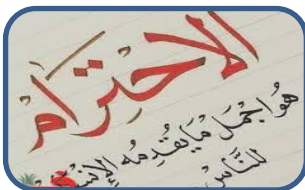 الاحترام
هو أجمل ما يقدمه الإنسان
للناس